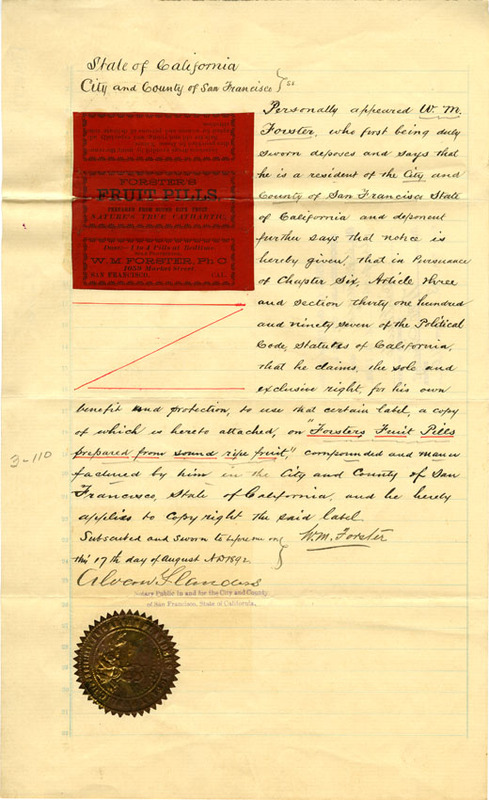 State of California
City and County of San Francisco } ss
Personally appeared W. M.
Forster, who first being duly
sworn deposes and says that
he is a resident of the City and
County of San Francisco State
of California and deponent
further says that notice is
hereby given, that in Persuance
of Chapter Six, Article three
and section thirty one hundred
and ninety seven of the Political
Code, Statutes of California,
that he claims, the sole and
exclusive right, for his own
benefit and protection, to use that certain label, a copy
of which is hereto attached, on "Forsters Fruit Pills
prepared from sound ripe fruit," compounded and manu
factured by him in the City and County of San
Francisco, State of California, and he hereby
applies to Copy right the said label.
Subscribed and sworn to before me on
this 17th day of August AD 1892
W. M. Forster
Alvan Flanders
Notary Public in and for the City and County
of San Francisco, State of California.
3-110
FORSTER'S
FRUIT PILLS,
PREPARED FROM SOUND RIPE FRUIT.
NATURE'S TRUE CATHARTIC.
Dose—1 to 4 Pills at Bedtime.
W. M. FORSTER, Ph. C.
Market Street
SAN FRANCISCO, CAL.